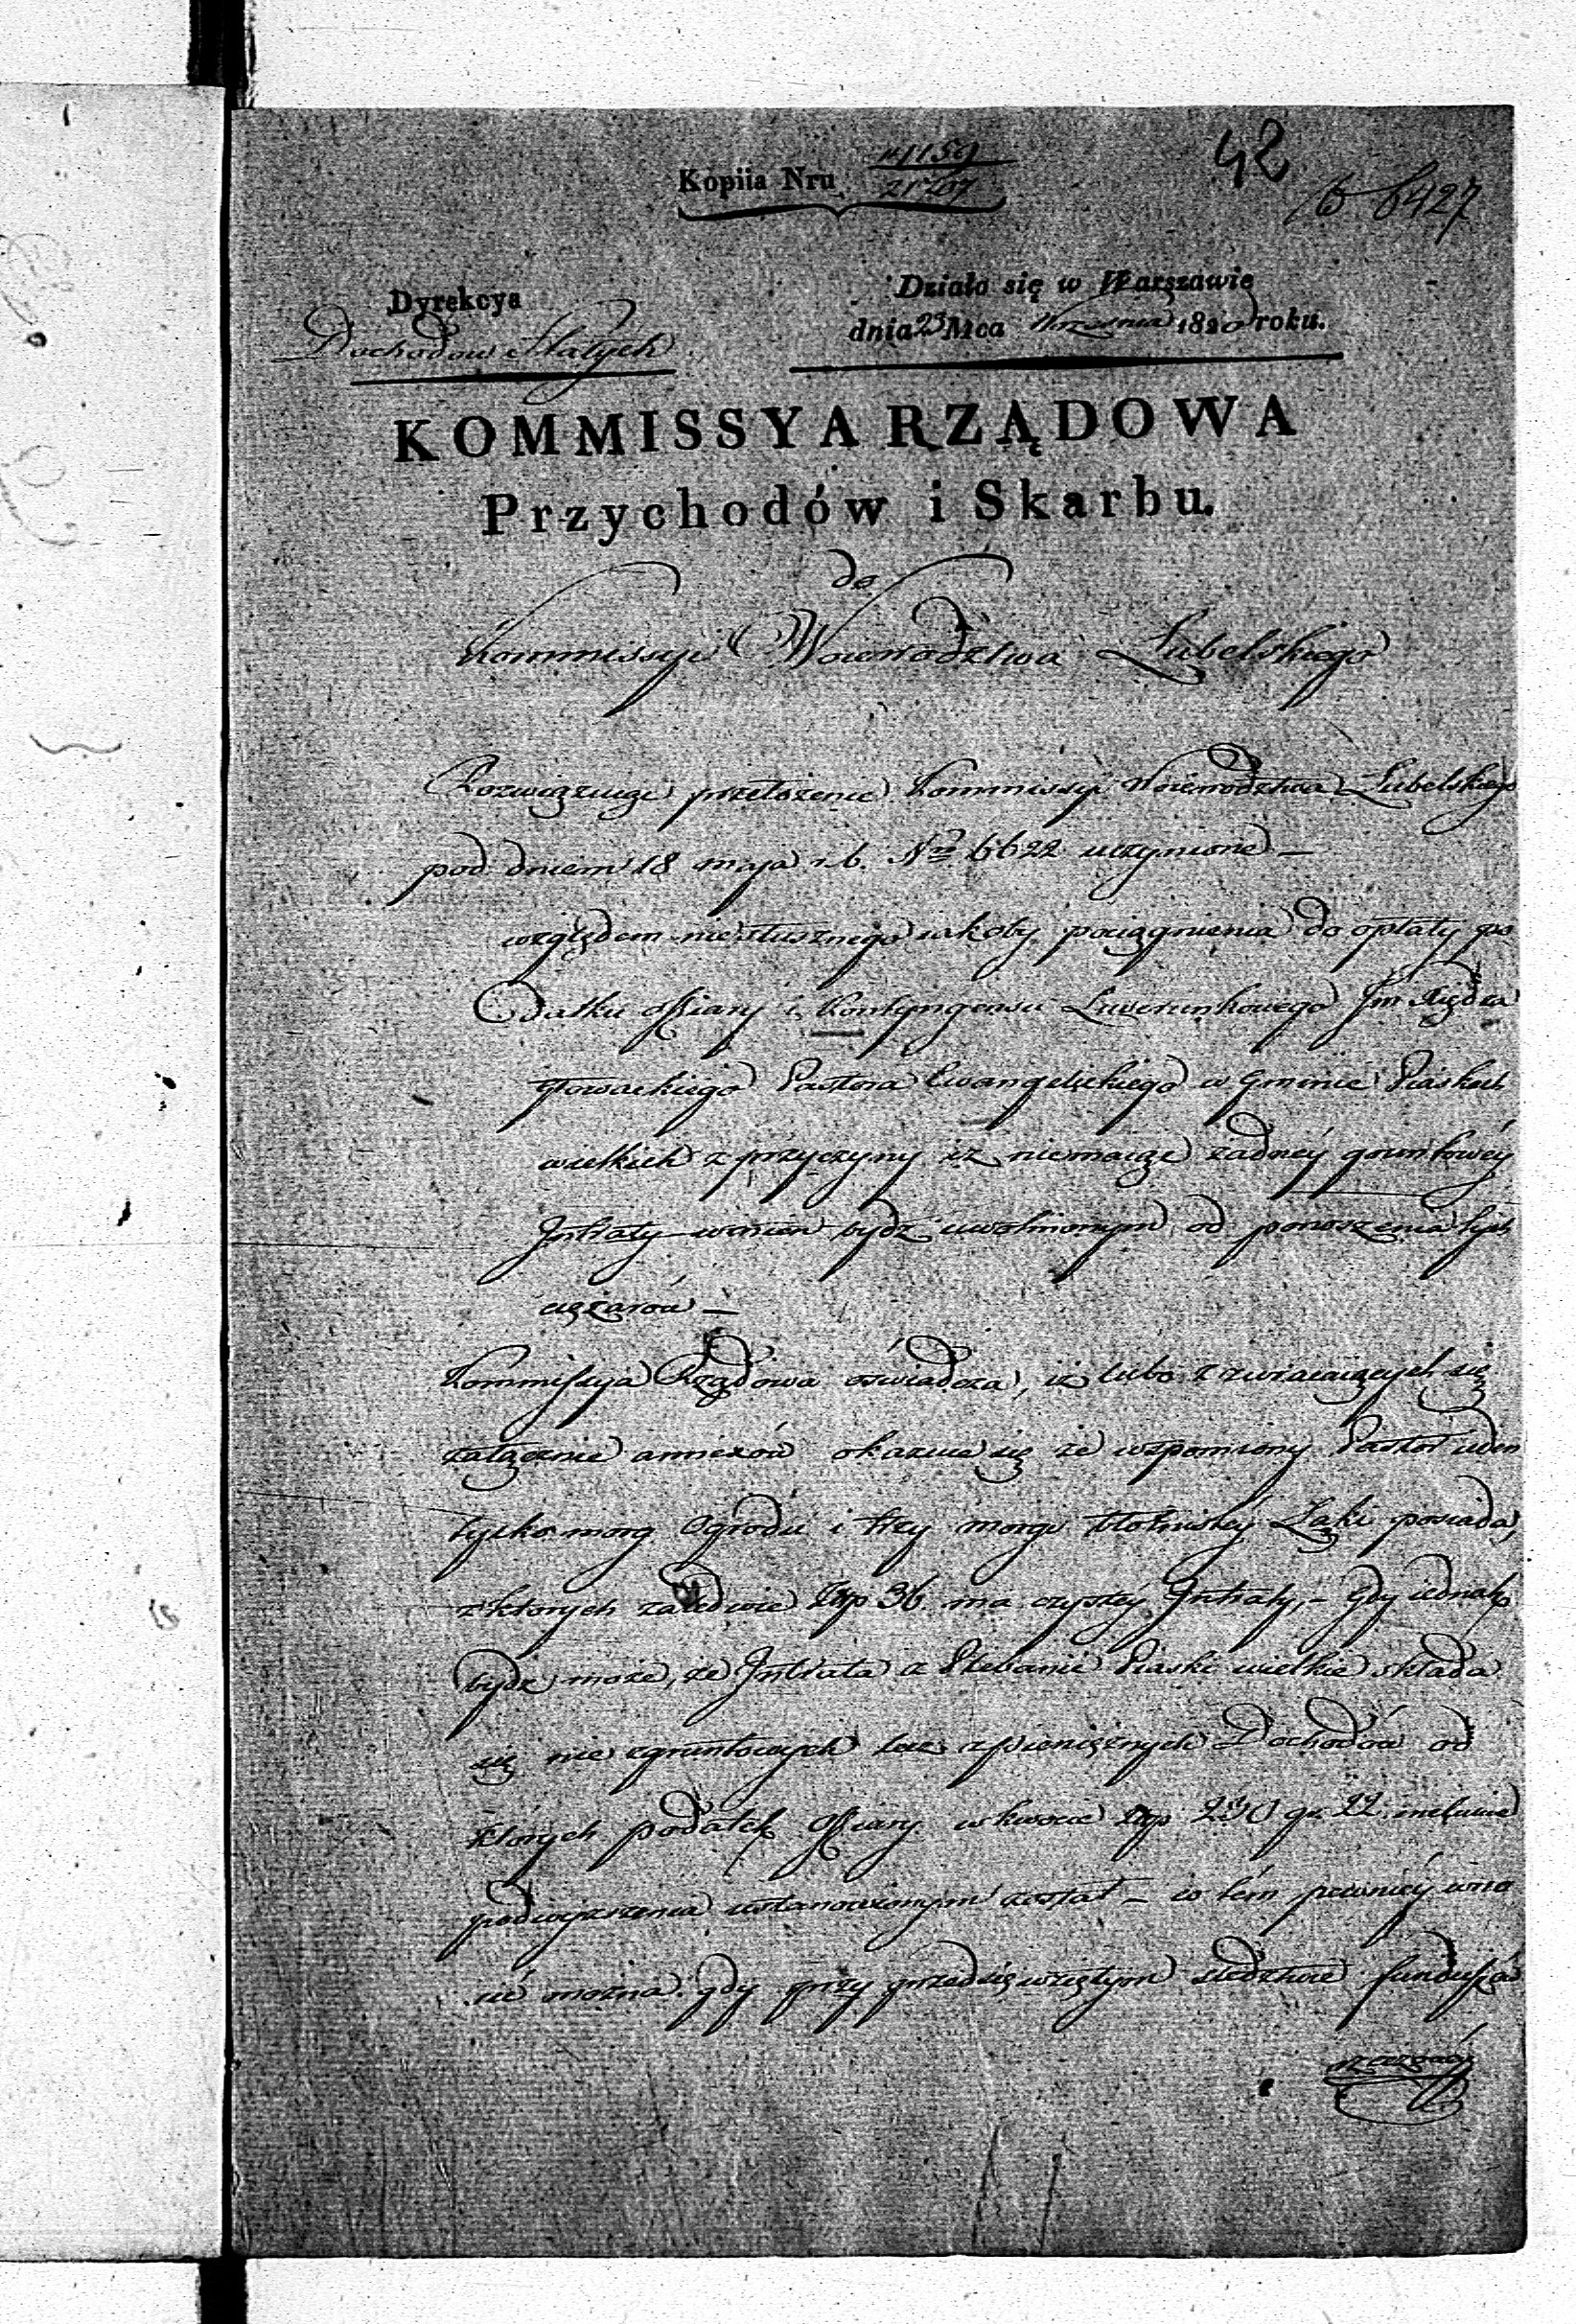 42
Kopiia Nru 41159
21707
6427
Dyrekcya
Dochodow Stałych
Działo się w Warszawie
dnia 23 Mca Września 1820 roku.
KOMMISSYA RZĄDOWA
Przychodów i Skarbu.
do
Kommissyi Woiewodztwa Lubelskiego
Rozwięzuiąc przełożenie Kommissyi Woiewodztwa Lubelskiego
pod dniem 18 maja r. b. Nro 6622 uczynione —
względem niesłusznego iakoby pociągnienia do opłaty po
datku offiary i Kontyngensu Liwerunkowego Jm Xiędza
Głowackiego Pastora Ewangelickiego w Gminie Piaskach
wielkich z przyczyny iż niemaiąc żadnéy gruntowéy
Intraty winien bydź uwolnionym od ponoszenia tych
ciężarów —
Kommissya Rządowa oświadcza, iż lubo z zwracaiących się
załącznie annexów okazuie się że wspomniony Pastor ieden
tylko morg Ogrodu i trzy morgi błotnistéy Łąki posiada,
z ktorych zaledwie Złp 36 ma czystéy Intraty, — Gdy iednak
bydź może, że Intrata z Plebanii Piaski wielkie składa
się nie z gruntowych lecz z pieniężnych Dochodów od
ktorych podatek Offiary w kwocie Złp 230 gr. 22 inclusive
podwyższenia ustanowionym został — co tém pewniéy wno
sić można gdy przy przedsięwziętym śledztwie funduszów